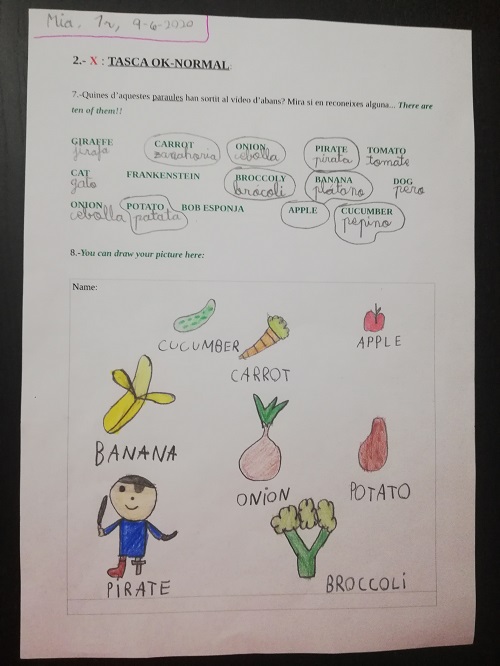 Mia. 1r, 9-6-2020
2.- X : TASCA OK-NORMAL
7.-Quines d'aquestes paraules han sortit al vídeo d'abans? Mira si en reconeixes alguna... There are
ten of them!!
GIRAFFE CARROT ONION PIRATE TOMATO
jirafa zanahoria cebolla pirata tomate
CAT FRANKENSTEIN BROCCOLY BANANA DOG
gato brócoli plátano pero
ONION POTATO BOB ESPONJA APPLE CUCUMBER
cebolla patata pepino
8.-You can draw your picture here:
Name:
CUCUMBER APPLE
CARROT
BANANA
ONION POTATO
PIRATE BROCCOLI